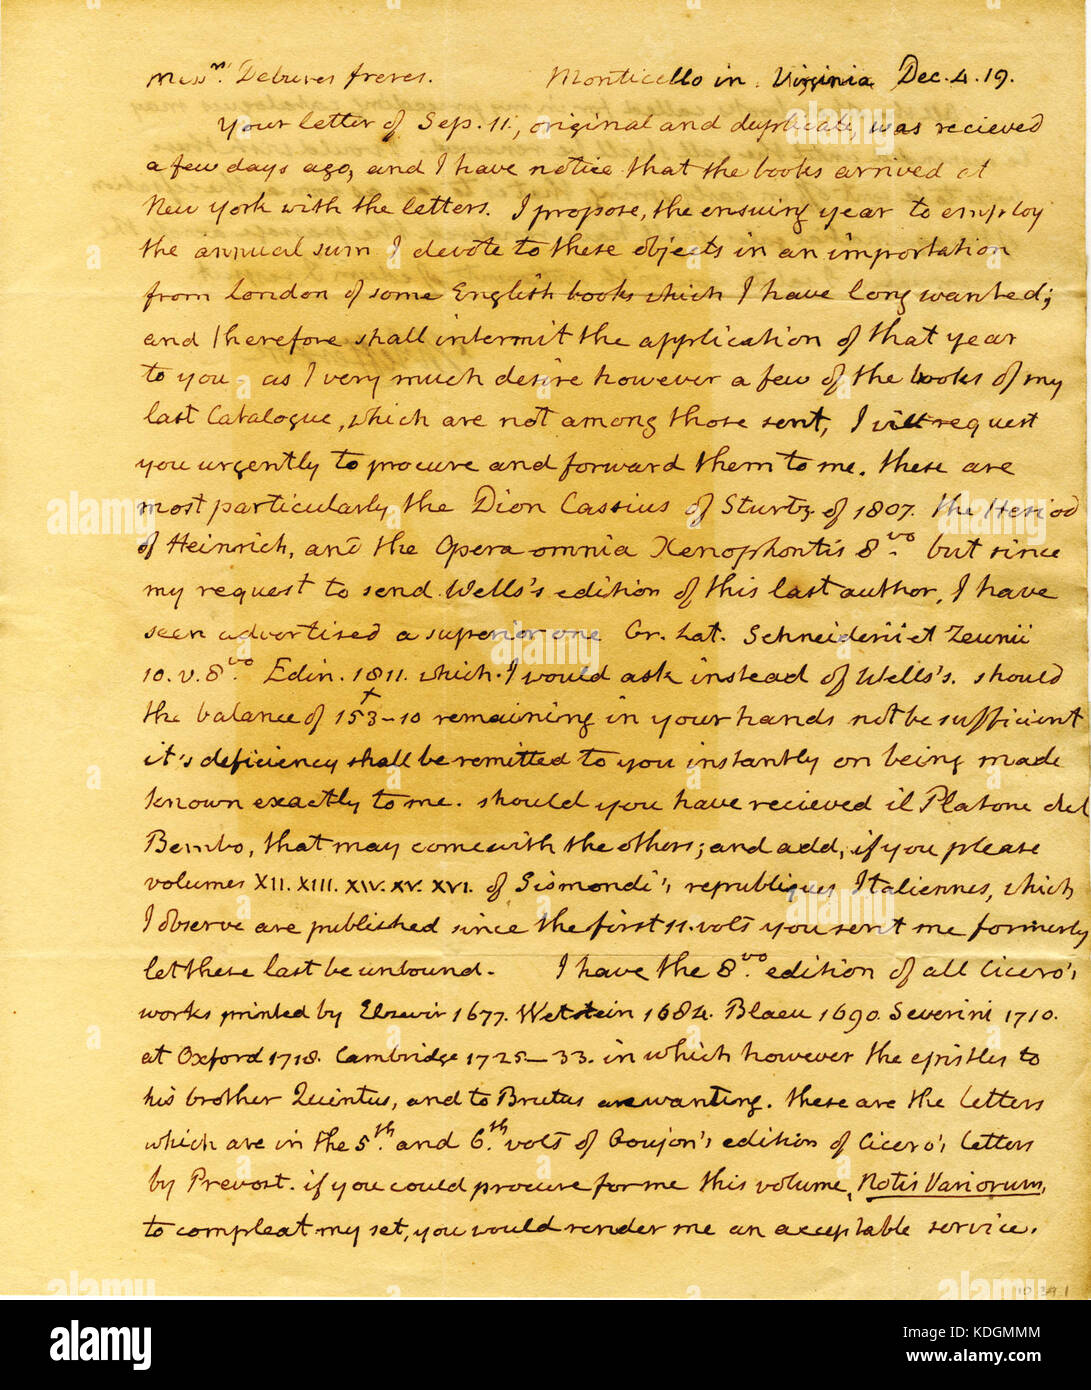 Mess.rs Debures freres. Monticello in Virginia Dec. 4. 19.
Your letter of Sep. 11, original and duplicate, was recieved
a few days ago, and I have notice that the books arrived at
New York with the letters. I propose, the ensuing year to employ
the annual sum I devote to these objects in an importation
from London of some English books which I have long wanted;
and therefore shall intermit the application of that year
to you. as I very much desire however a few of the books of my
last Catalogue, which are not among those sent, I will request
you urgently to procure and forward them to me. these are
most particularly the Dion Cassius of Sturtz of 1807. the Hesiod
of Heinrich, and the Opera omnia Xenophontis 8vo. but since
my request to send Wells's edition of this last author, I have
seen advertised a superior one Gr. Lat. Schneiderii et Zeunii
10. v. 8vo. Edin. 1811. which I would ask instead of Wells's. should
the balance of 153-10 remaining in your hands not be sufficient
it's deficiency shall be remitted to you instantly on being made
known exactly to me. should you have recieved il Platone del
Bembo, that may come with the others; and add, if you please
volumes XII. XIII. XIV. XV. XVI. of Sismondi's republiques Italiennes, which
I observe are published since the first 11. vols you sent me formerly
let these last be unbound. I have the 8vo. edition of all Cicero's
works printed by Elzevir 1677. Wetstein 1684. Blaeu 1690. Severini 1710.
at Oxford 1718. Cambridge 1725-33. in which however the epistles to
his brother Quintus, and to Brutus are wanting. these are the letters
which are in the 5th. and 6th. vols of Goujon's edition of Cicero's letters
by Prevost. if you could procure for me this volume, Notis Variorum,
to compleat my set, you would render me an acceptable service.
10.291
alamy
Image ID: KDGMMM
www.alamy.com